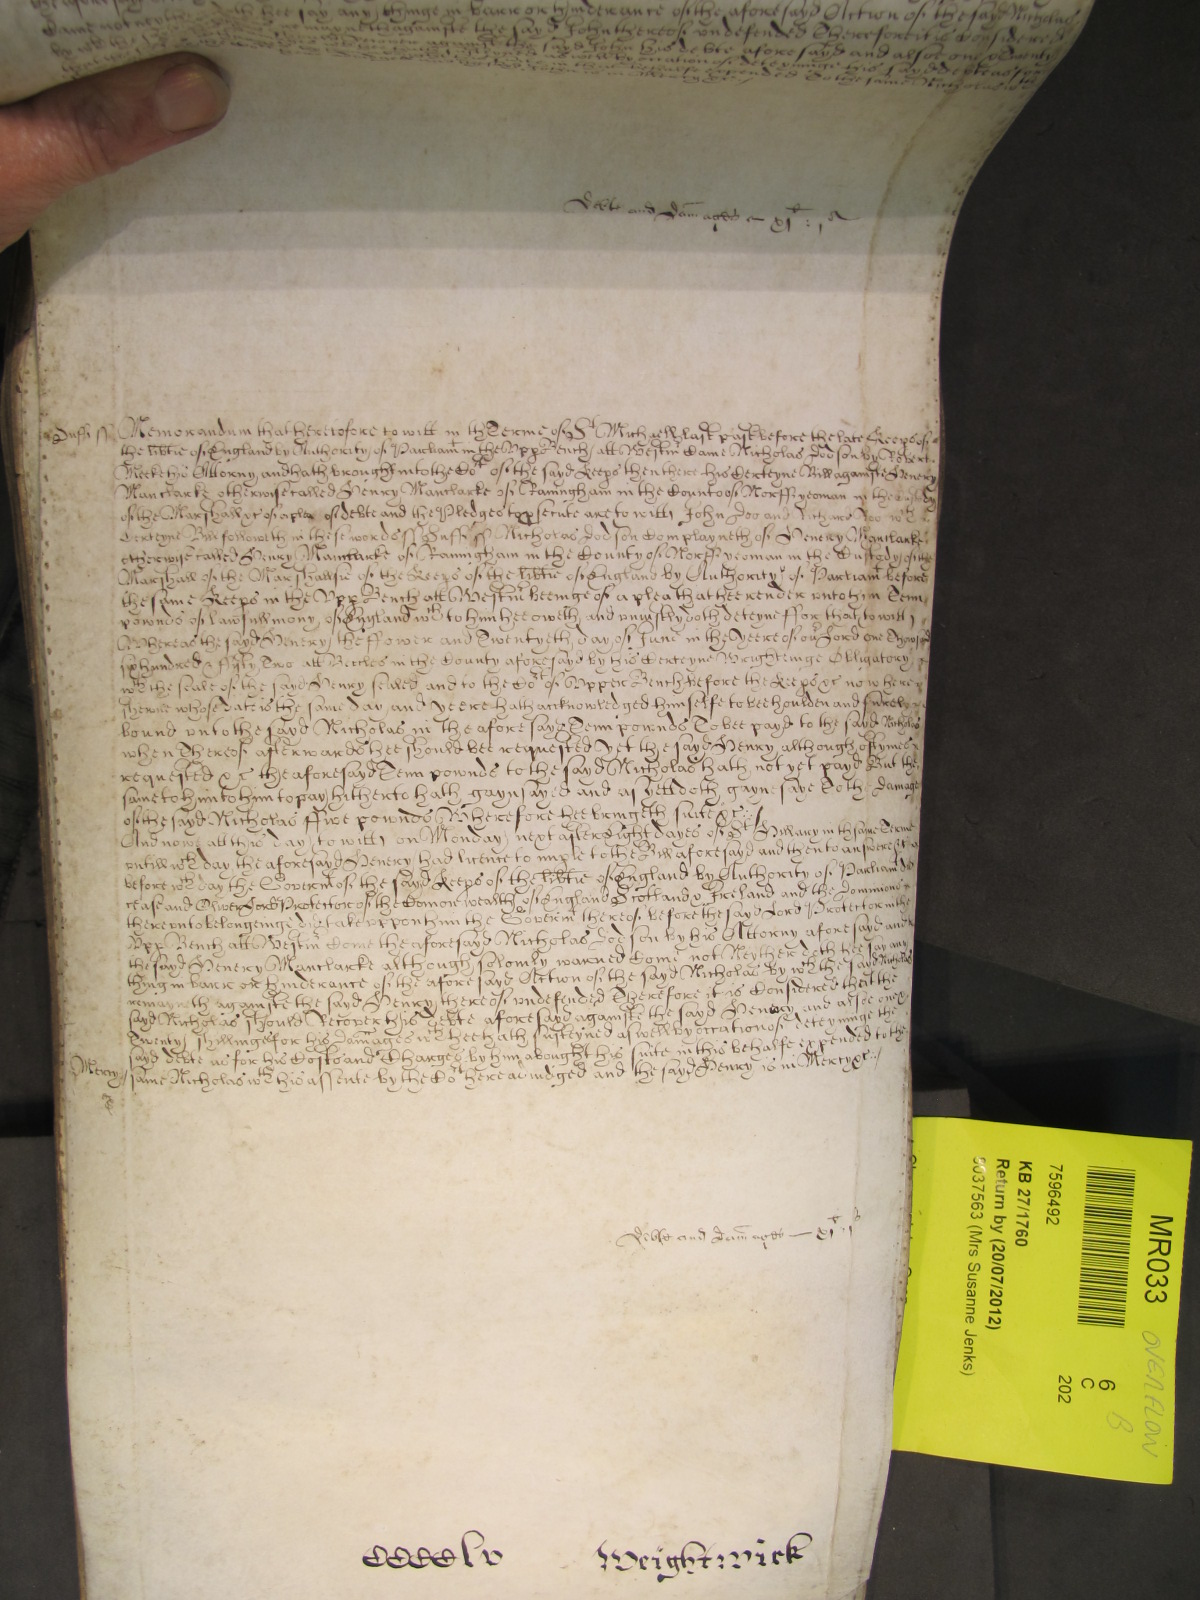 thee say any thinge in barr or hynderance of the aforesayd Action of the sayd Nicholas
againste the sayd John thereof undefended Therefore it is Considered
the sayd John his debte aforesayd and alsoe
Debte and Damages — xjl : js
Suff ss Memorandum that heretofore to witt in the Terme of St Michaell last past before the late Keepers of
the libtie of England by Authority of Parliamt in the Upp Bench att Westmr Came Nicholas Dodson by Robert
Meeke his Attorny and hath brought into the Cort of the sayd Keeps then there his Certeyne Bill againste Henry
Manclarke otherwise called Henry Manclarke of Raningham in the County of Norff yeoman in the Custody
of the Marshall &c of a plea of debte and the Pledges to psecute are to witt John Doo and Richard Roo wch
Certeyne Bill followeth in these words ss Suff ss Nicholas Dodson Complayneth of Henery Manclarke
otherwise called Henry Manclarke of Raningham in the County of Norff yeoman in the Custody of the
Marshall of the Marshallsie of the Keeps of the libtie of England by Authority of Parliamt before
the same Keeps in the Upp Bench att Westmr beeinge of a plea that hee render unto him Tenn
pownds of lawfull mony of England wch to him hee oweth and uniustly doth deteyne ffor that to witt
Whereas the sayd Henery the ffower and Twentyeth day of June in the Yeere of our Lord one Thowsand
six hundred & ffifty Two att Beccles in the County aforesayd by his Certeyne Wrighteinge Obligatory
wth the seale of the sayd Henry sealed and to the Cort of Upper Bench before the Keeps &c now here
shewne whose date is the same day and yeere hath acknowledged himselfe to bee houlden and surely
bound unto the sayd Nicholas in the aforesayd Tenn pownds To bee payd to the sayd Nicholas
when Thereof afterwards hee should bee requested Yet the sayd Henry although oftymes
requested &c the aforesayd Tenn pownds to the sayd Nicholas hath not yet payd But the
same to him to him to pay hitherto hath gaynsayed and as yett doth gaynesaye To the damage
of the sayd Nicholas ffive pownds Wherefore hee bringeth suite &c
And now att this day to witt on Monday next after Eight dayes of St Hillary in th same Terme
untill wch day the aforesayd Henery had licence to imple to the Bill aforesayd and then to answere &c
before wch day the Governt of the sayd Keeps of the libtie of England by Authority of Parliamt did
cease and Oliver Lord Protector of the Comonwealth of England Scotland & Ireland and the Dominions
thereunto belongeinge did take uppon him the Governt thereof before the sayd Lord Protector in the
Upp Bench att Westmr Come the aforesayd Nicholas Dodson by his Attorny aforesayd and
the sayd Henery Manclarke although solemly warned Come not Neyther doth hee say any
thing in barr or hinderance of the aforesayd Action of the sayd Nicholas by wch the sayd Nicholas
remayneth againste the sayd Henry thereof undefended Therefore it is Considered that the
sayd Nicholas should Recover his debte aforesayd againste the sayd Henery and alsoe one &
Twenty shillinges for his damages wch hee hath susteyned as well by occation of deteyninge the
sayd debte as for his Costs and Charges by him abought his suite in this behalfe expended to the
Mercy same Nicholas wth his assente by the Cort here adiudged and the sayd Henry is in Mercy &c
Debte and Damages — xjl : js
CCCClv Weightwick
MR033
OVERFLOW
B
6
C
202
7596492
KB 27/1760
Return by (20/07/2012)
9037563 (Mrs Susanne Jenks)